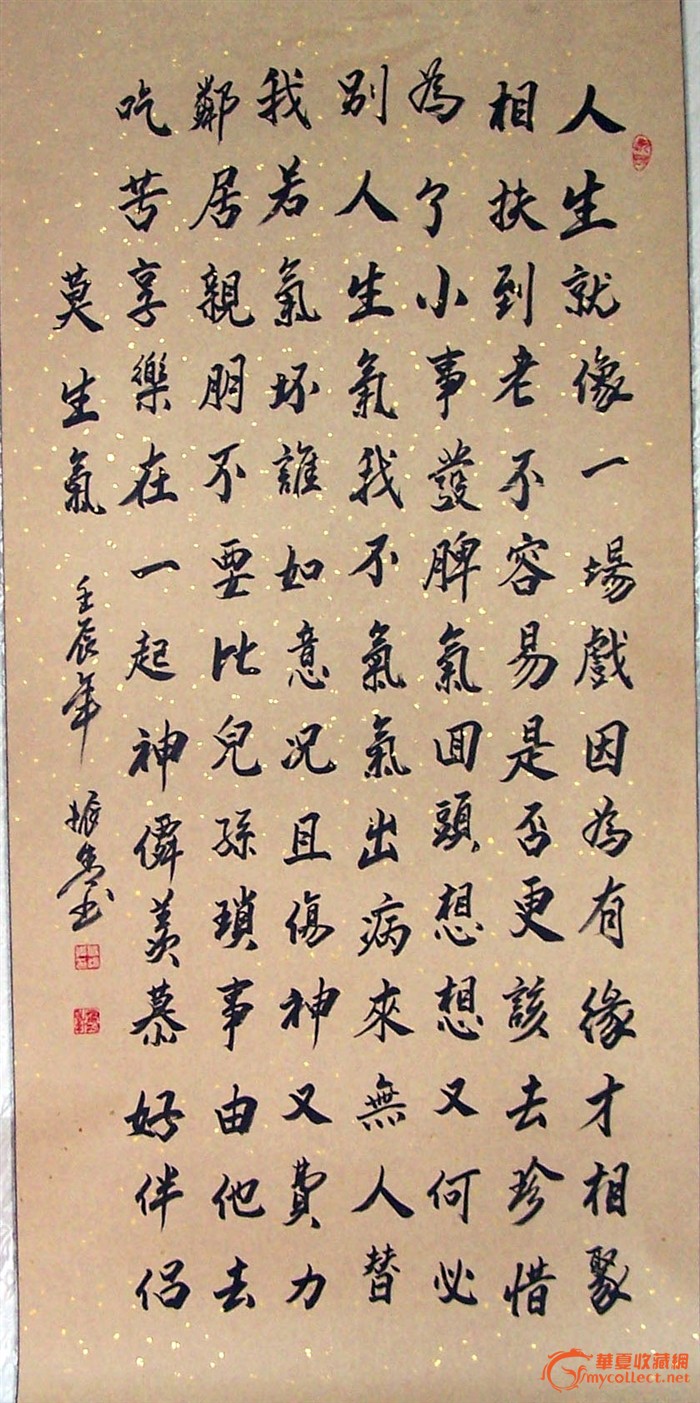 人生就像一場戲因為有緣才相聚
相扶到老不容易是否更該去珍惜
為了小事發脾氣回頭想想又何必
別人生氣我不氣氣出病來無人替
我若氣坏誰如意况且傷神又費力
鄰居親朋不要比兒孫瑣事由他去
吃苦享樂在一起神僊羨慕好伴侣
莫生氣
壬辰年 振 书
華夏收藏網
mycollect.net